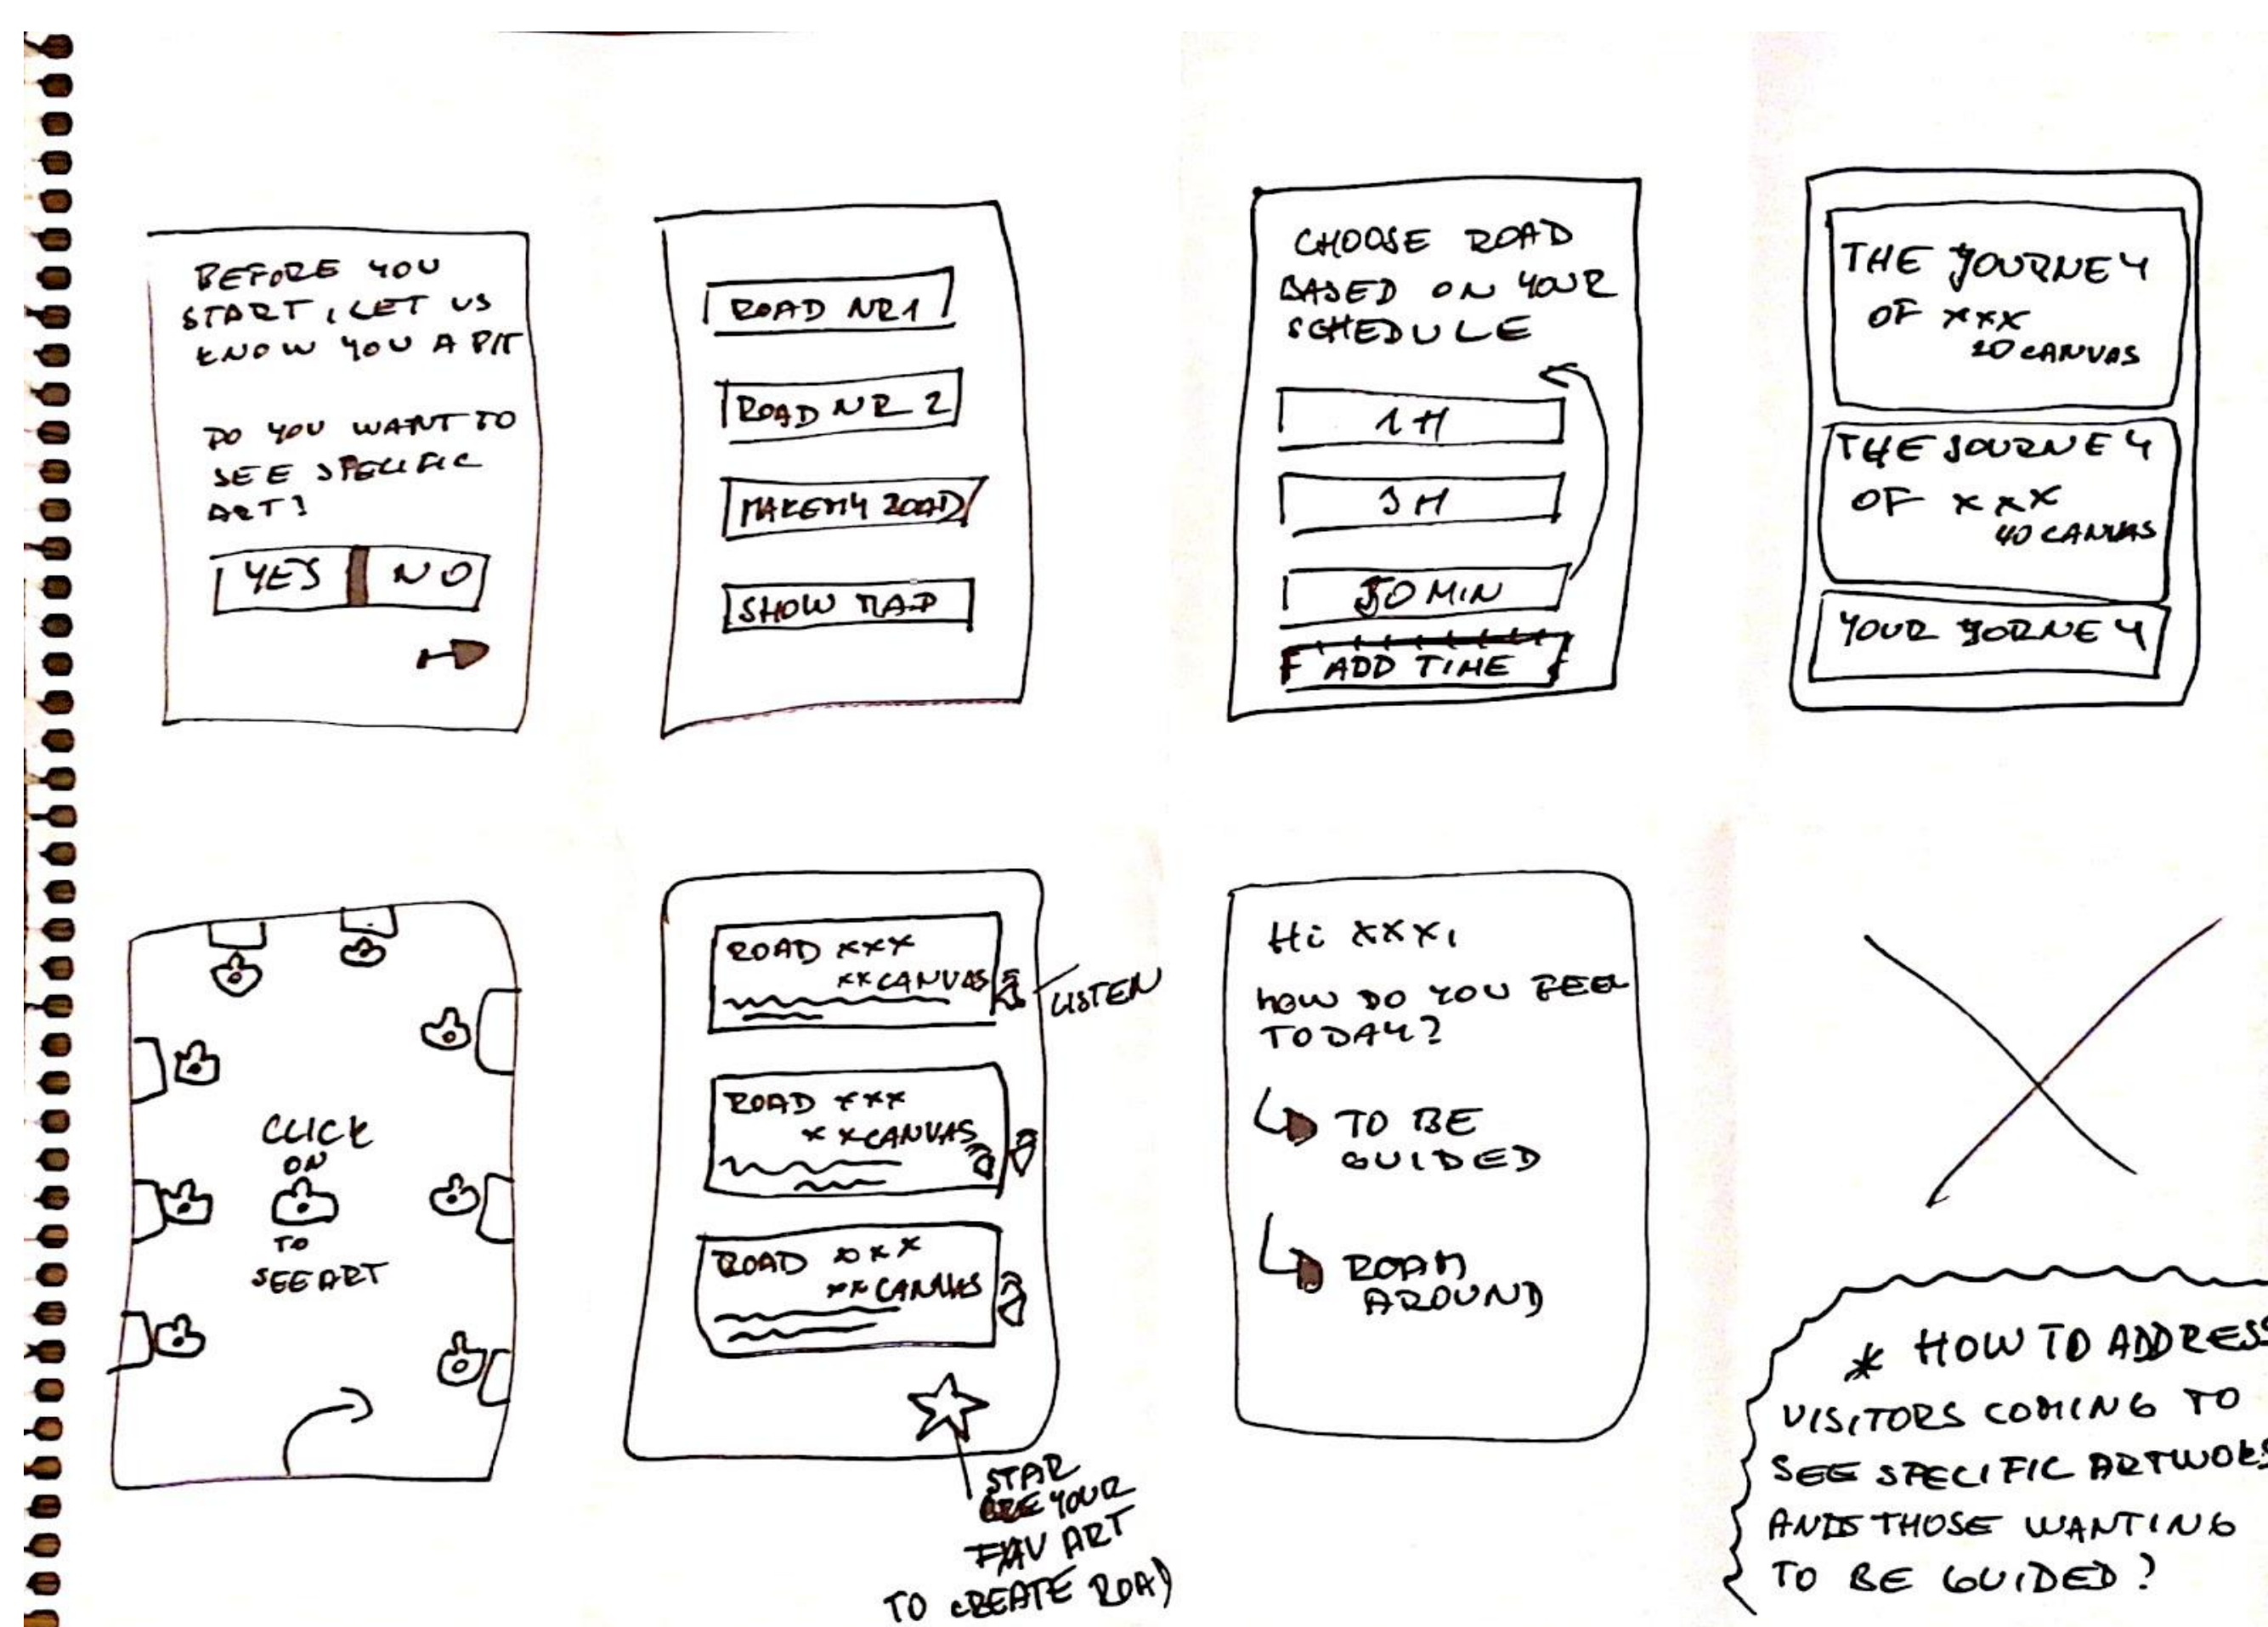 BEFORE YOU
START, LET US
KNOW YOU A BIT
DO YOU WANT TO
SEE SPECIFIC
ART?
YES NO
ROAD NR 1
ROAD NR 2
MAKE MY ROAD
SHOW MAP
CHOOSE ROAD
BASED ON YOUR
SCHEDULE
1 H
3 H
30 MIN
ADD TIME
THE JOURNEY
OF XXX
20 CANVAS
THE JOURNEY
OF XXX
40 CANVAS
YOUR JORNEY
CLICK
ON
TO
SEE ART
ROAD XXX
XX CANVAS
LISTEN
ROAD XXX
XX CANVAS
ROAD XXX
XX CANVAS
STAR
YOUR
FAV ART
TO CREATE ROAD
Hi XXX,
HOW DO YOU FEEL
TODAY?
TO BE
GUIDED
ROAM
AROUND
* HOW TO ADDRESS
VISITORS COMING TO
SEE SPECIFIC ARTWOKS
AND THOSE WANTING
TO BE GUIDED?